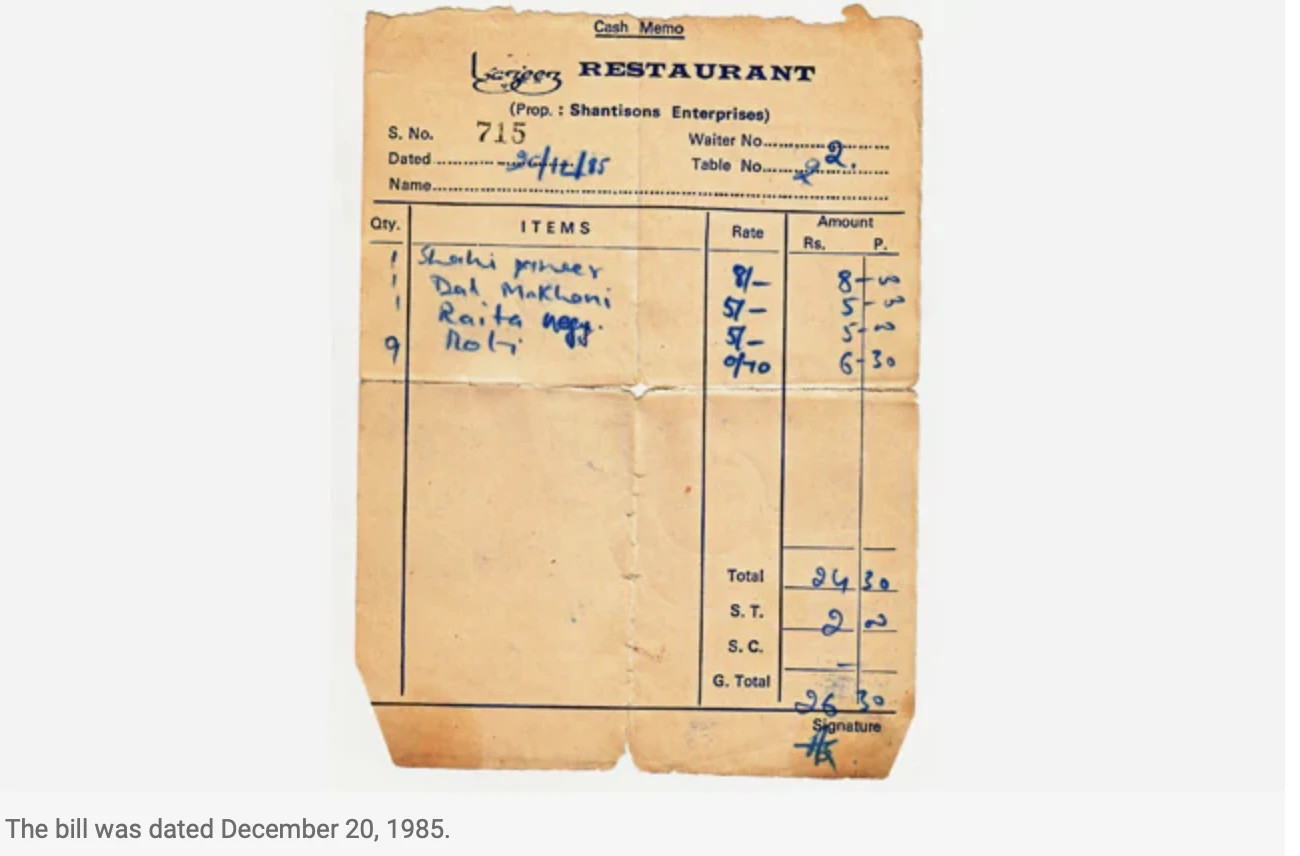 Cash Memo
Lazeez RESTAURANT
(Prop. : Shantisons Enterprises)
S. No. 715 Waiter No. 2.
Dated 20/12/85 Table No. 2
Name
Qty. ITEMS Rate Amount
Rs. P.
1 Shahi paneer 8/- 8-00
1 Dal Makhani 5/- 5-00
1 Raita vegg. 5/- 5-00
9 Roti 0/70 6-30
Total 24 30
S. T. 2 00
S. C. -
G. Total 26 30
Signature
The bill was dated December 20, 1985.